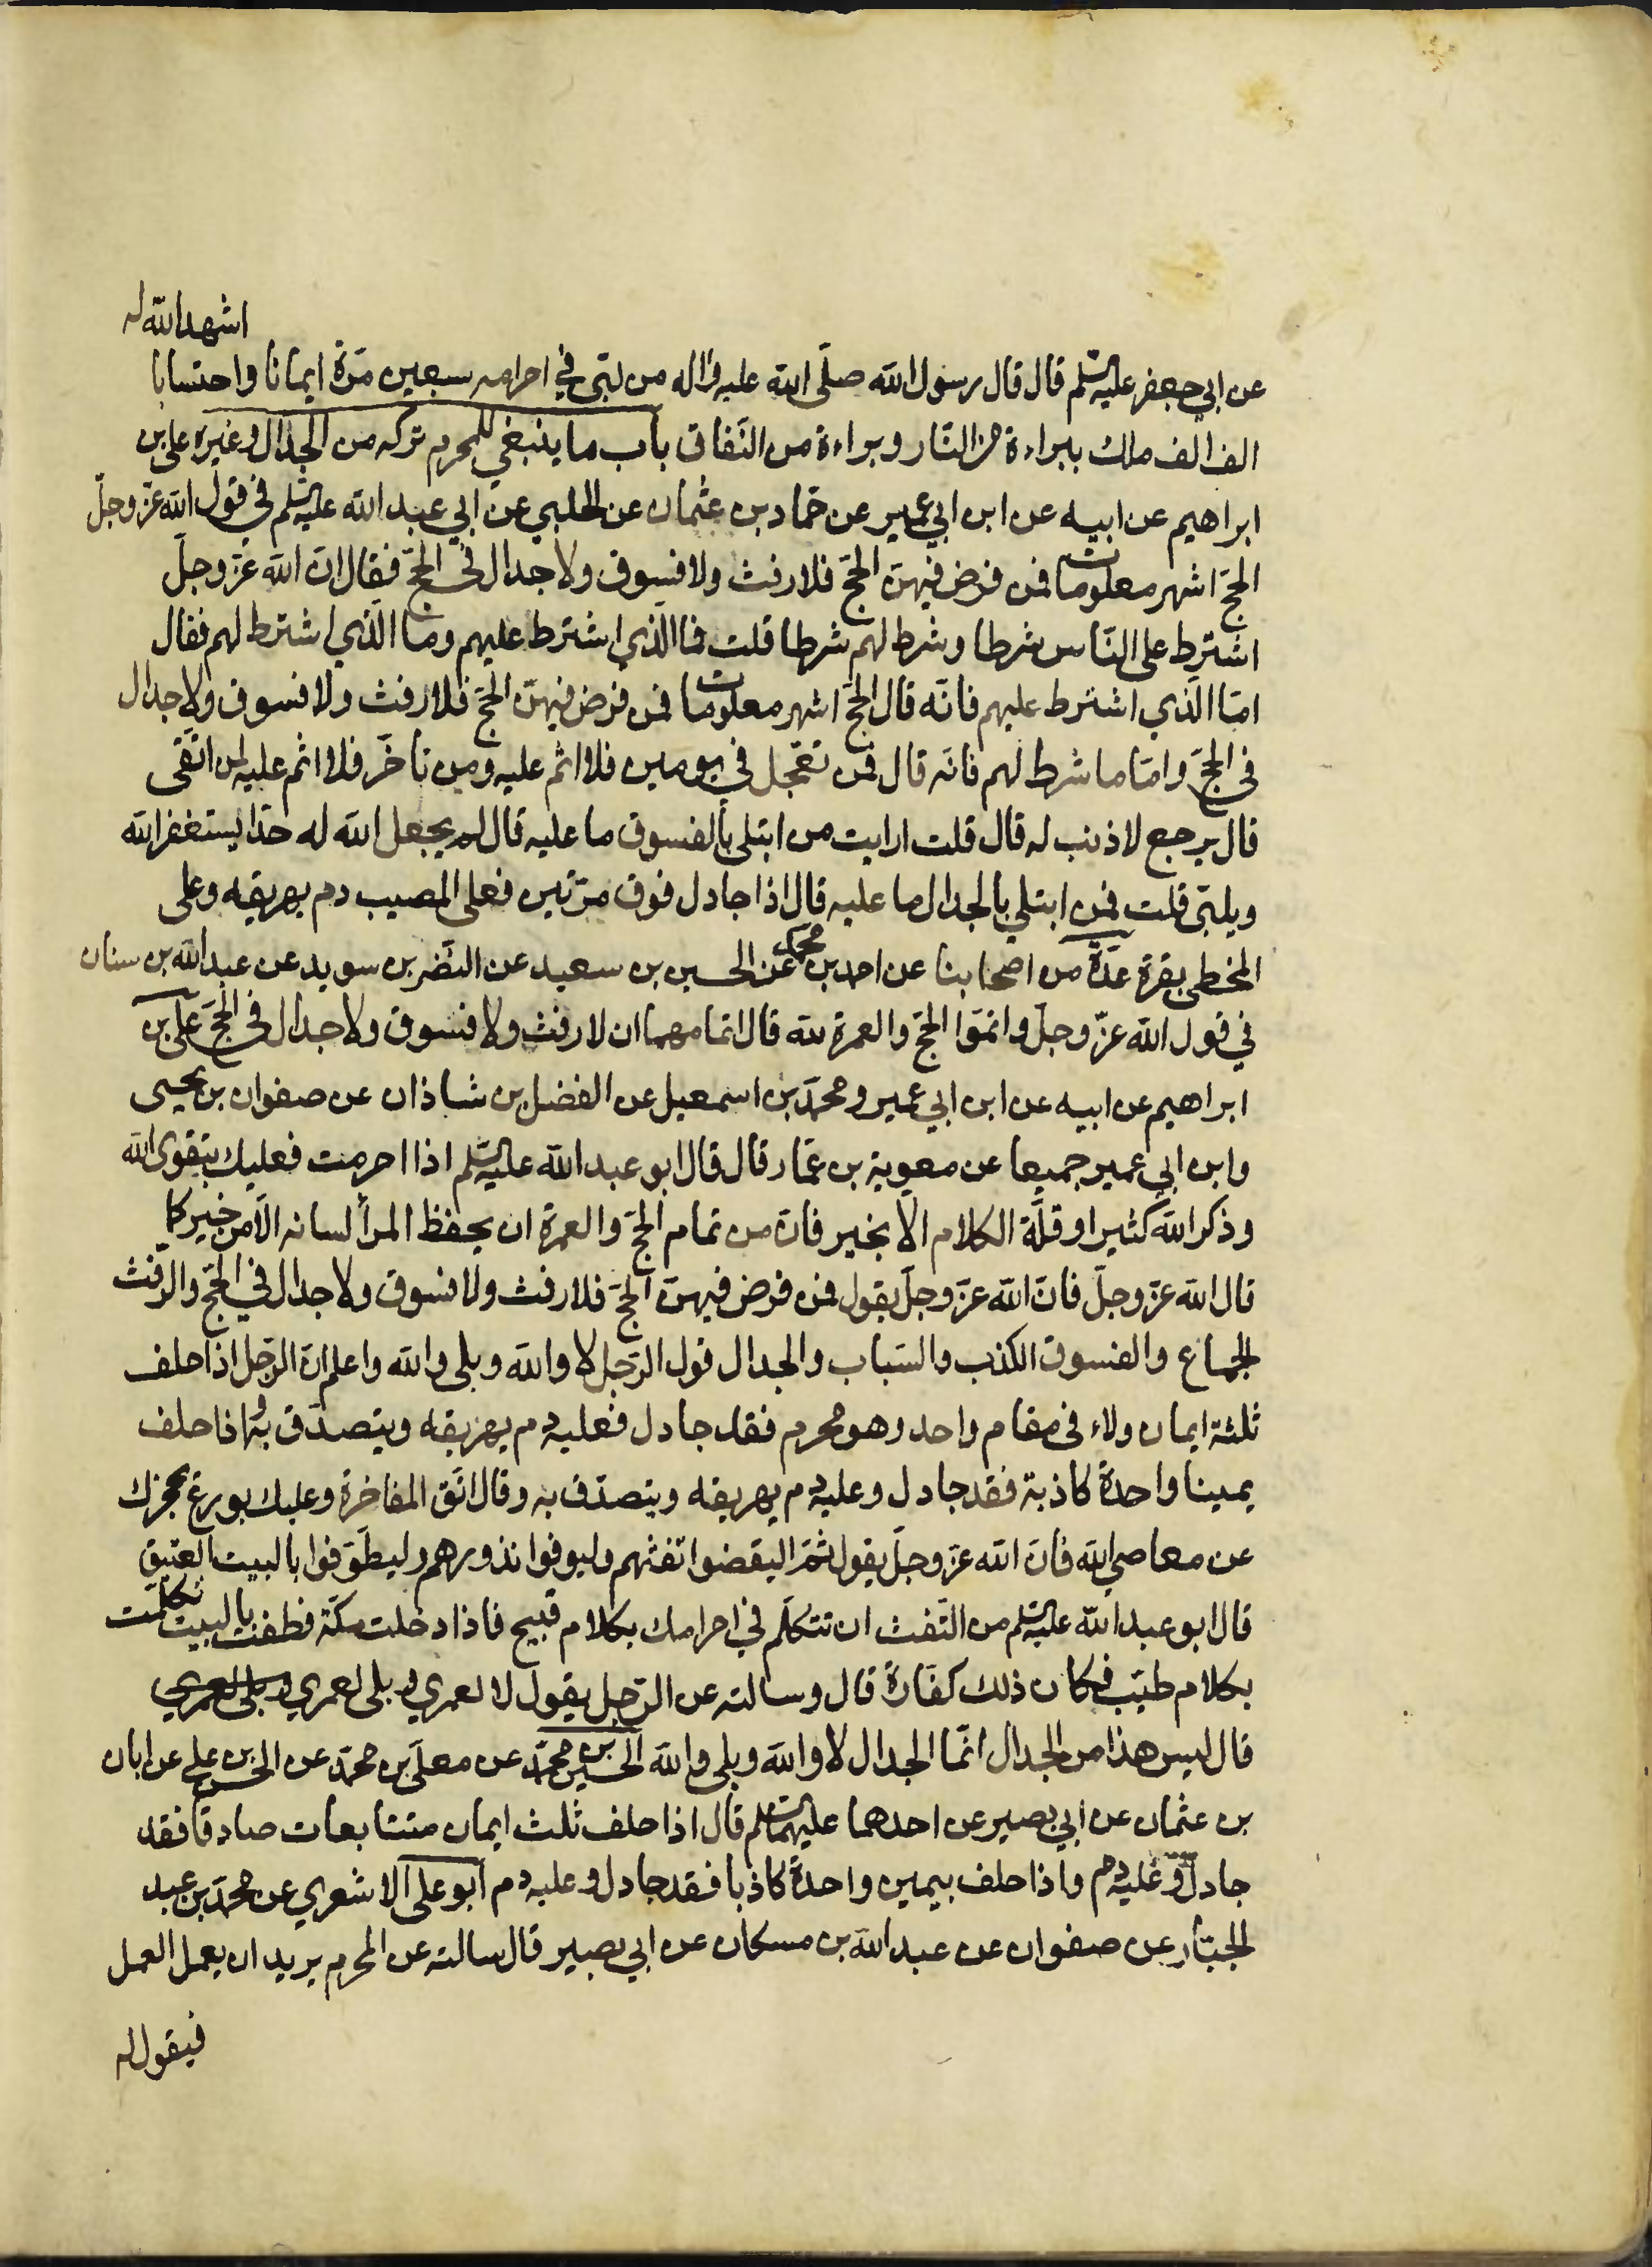 اشهد الله له
عن ابي جعفر عليه السلم قال قال رسول الله صلّى الله عليه واله من لبّى في احرامه سبعين مرّة ايمانا واحتسابا
الف الف ملك ببراءة من النّار وبراءة من النّفاق باب ما ينبغي للمحرم تركه من الجدال وغيره علي بن
ابراهيم عن ابيه عن ابن ابي عمير عن حمّاد بن عثمان عن الحلبي عن ابي عبد الله عليه السلم في قول الله عزّ وجلّ
الحجّ اشهر معلومات فمن فرض فيهنّ الحجّ فلا رفث ولا فسوق ولا جدال في الحجّ فقال انّ الله عزّ وجلّ
اشترط على النّاس شرطا وشرط لهم شرطا قلت فما الّذي اشترط عليهم وما الّذي اشترط لهم فقال
امّا الّذي اشترط عليهم فانّه قال الحجّ اشهر معلومات فمن فرض فيهنّ الحجّ فلا رفث ولا فسوق ولا جدال
في الحجّ وامّا ما شرط لهم فانّه قال فمن تعجّل في يومين فلا اثم عليه ومن تأخّر فلا اثم عليه لمن اتّقى
قال يرجع لا ذنب له قال قلت ارايت من ابتلى بالفسوق ما عليه قال لم يجعل الله له حدّا يستغفر الله
ويلبّى قلت فمن ابتلي بالجدال ما عليه قال اذا جادل فوق مرّتين فعلى المصيب دم يهريقه وعلى
المخطى بقرة عدّة من اصحابنا عن احمد بن محمد عن الحسين بن سعيد عن النّضر بن سويد عن عبد الله بن سنان
في قول الله عزّ وجلّ واتمّوا الحجّ والعمرة لله قال اتمامهما ان لا رفث ولا فسوق ولا جدال في الحجّ علي بن
ابراهيم عن ابيه عن ابن ابي عمير ومحمّد بن اسمعيل عن الفضل بن شاذان عن صفوان بن يحيى
وابن ابي عمير جميعا عن معوية بن عمّار قال قال ابو عبد الله عليه السلم اذا احرمت فعليك بتقوى الله
وذكر الله كثيرا وقلّة الكلام الّا بخير فانّ من تمام الحجّ والعمرة ان يحفظ المرأ لسانه الّا من خير كما
قال الله عزّ وجلّ فانّ الله عزّ وجلّ يقول فمن فرض فيهنّ الحجّ فلا رفث ولا فسوق ولا جدال في الحجّ والرّفث
الجماع والفسوق الكذب والسّباب والجدال قول الرّجل لا والله وبلى والله واعلم انّ الرّجل اذا حلف
ثلثة ايمان ولاء في مقام واحد وهو محرم فقد جادل فعليه دم يهريقه ويتصدّق به و اذا حلف
يمينا واحدة كاذبة فقد جادل وعليه دم يهريقه ويتصدّق به وقال اتّق المفاخرة وعليك بورع يحجزك
عن معاصي الله فانّ الله عزّ وجلّ يقول ثمّ اليقضوا تفثهم وليوفوا نذورهم وليطّوّفوا بالبيت العتيق
قال ابو عبد الله عليه السلم من التّفث ان تتكلّم في احرامك بكلام قبيح فاذا دخلت مكّة فطفت بالبيت تكلمت
بكلام طيّب فكان ذلك كفّارة قال وسالته عن الرّجل يقول لا لعمري و بلى لعمري و بلى لعمري
قال ليس هذا من الجدال انّما الجدال لا والله وبلى والله الحسين بن محمّد عن معلّى بن محمّد عن الحسن بن علي عن ابان
بن عثمان عن ابي بصير عن احدهما عليهما السلم قال اذا حلف ثلث ايمان متتابعات صادقا فقد
جادل وعليه دم واذا حلف بيمين واحدة كاذبا فقد جادل وعليه دم ابو علي الاشعري عن محمّد بن عبد
الجبّار عن صفوان عن عبد الله بن مسكان عن ابي بصير قال سالته عن المحرم يريد ان يعمل العمل
فيقول له